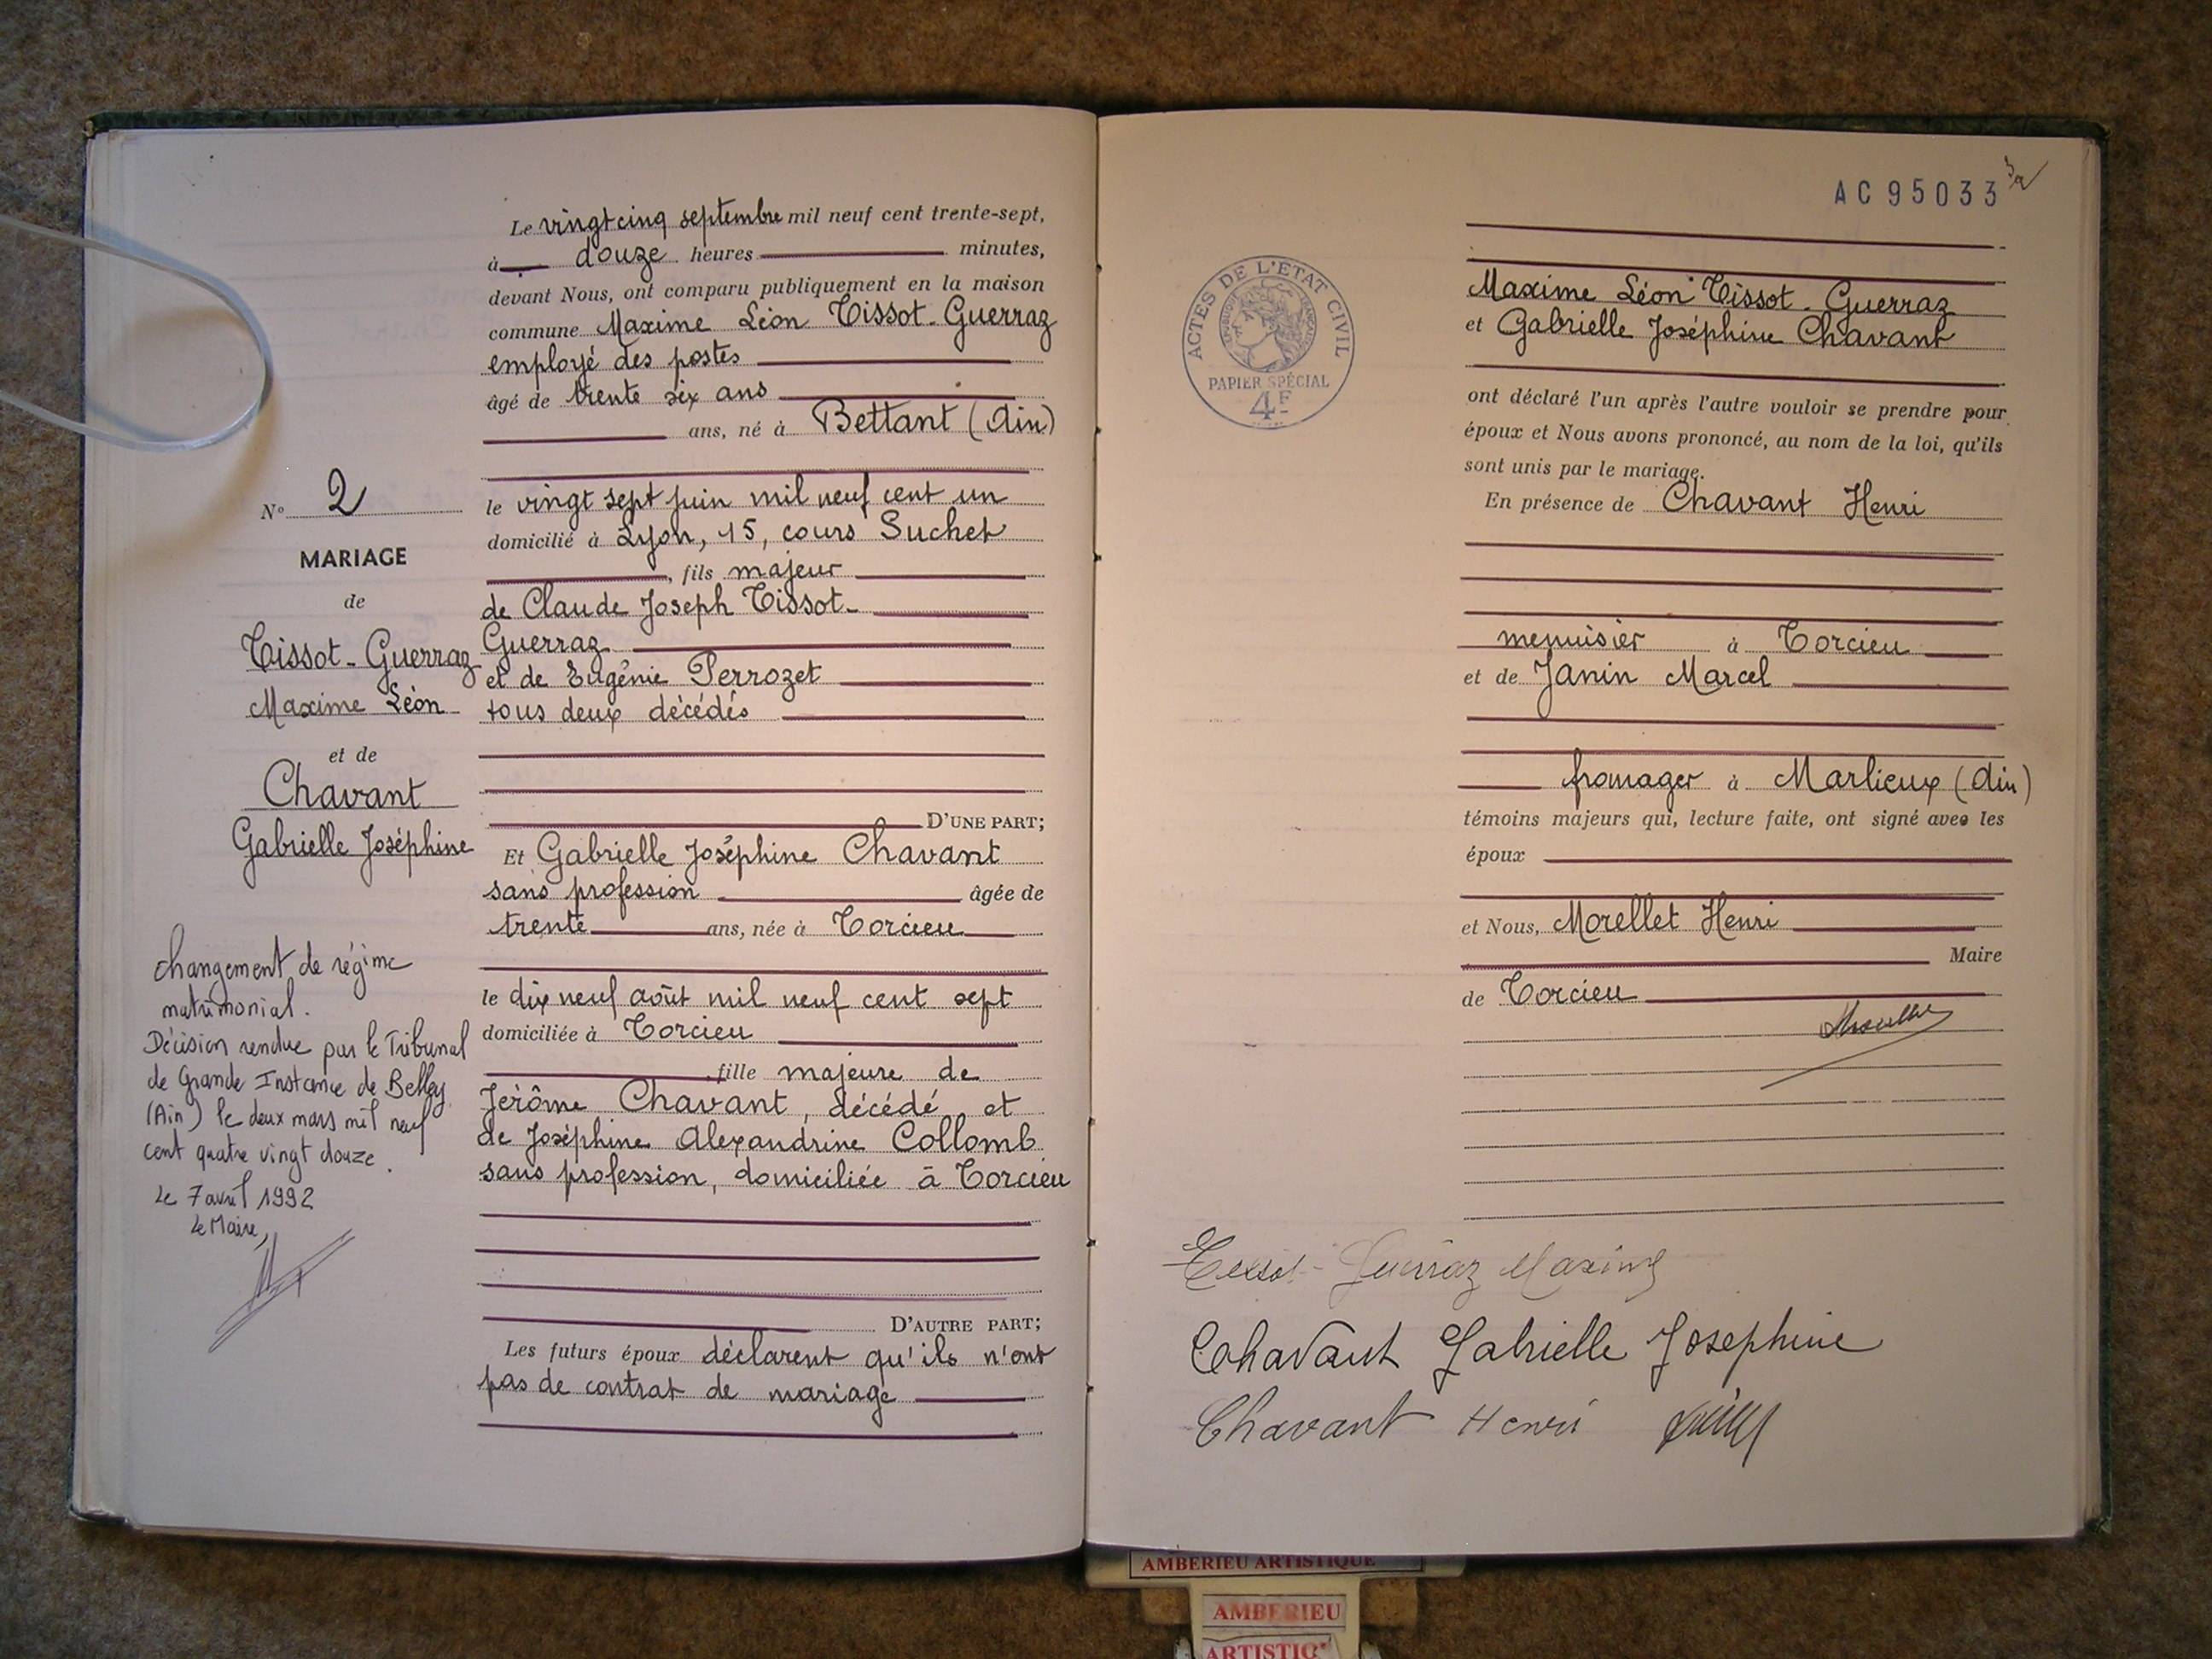 N° 2
MARIAGE
de
Tissot-Guerraz
Maxime Léon
et de
Chavant
Gabrielle Joséphine
changement de régime
matrimonial.
Décision rendue par le Tribunal
de Grande Instance de Belley
(Ain) le deux mars mil neuf
cent quatre vingt douze.
Le 7 avril 1992
Le Maire,
Le vingt cinq septembre mil neuf cent trente-sept,
à douze heures minutes,
devant Nous, ont comparu publiquement en la maison
commune Maxime Léon Tissot-Guerraz
employé des postes
âgé de trente six ans
ans, né à Bettant (Ain)
le vingt sept juin mil neuf cent un
domicilié à Lyon, 15, cours Suchet
, fils majeur
de Claude Joseph Tissot-
Guerraz
et de Eugénie Perrozet
tous deux décédés
D'UNE PART;
Et Gabrielle Joséphine Chavant
sans profession âgée de
trente ans, née à Torcieu
le dix neuf août mil neuf cent sept
domiciliée à Torcieu
, fille majeure de
Jérôme Chavant, décédé et
de Joséphine Alexandrine Collomb
sans profession, domiciliée à Torcieu
D'AUTRE PART;
Les futurs époux déclarent qu'ils n'ont
pas de contrat de mariage
AC 95033
ACTES DE L'ETAT CIVIL
PAPIER SPÉCIAL
4F
Maxime Léon Tissot-Guerraz
et Gabrielle Joséphine Chavant
ont déclaré l'un après l'autre vouloir se prendre pour
époux et Nous avons prononcé, au nom de la loi, qu'ils
sont unis par le mariage.
En présence de Chavant Henri
menuisier à Torcieu
et de Janin Marcel
fromager à Marlieux (Ain)
témoins majeurs qui, lecture faite, ont signé avec les
époux
et Nous, Morellet Henri
Maire
de Torcieu
Tissot-Guerraz Maxime
Chavant Gabrielle Josephine
Chavant Henri
AMBERIEU ARTISTIQUE
AMBERIEU
ARTISTIQ